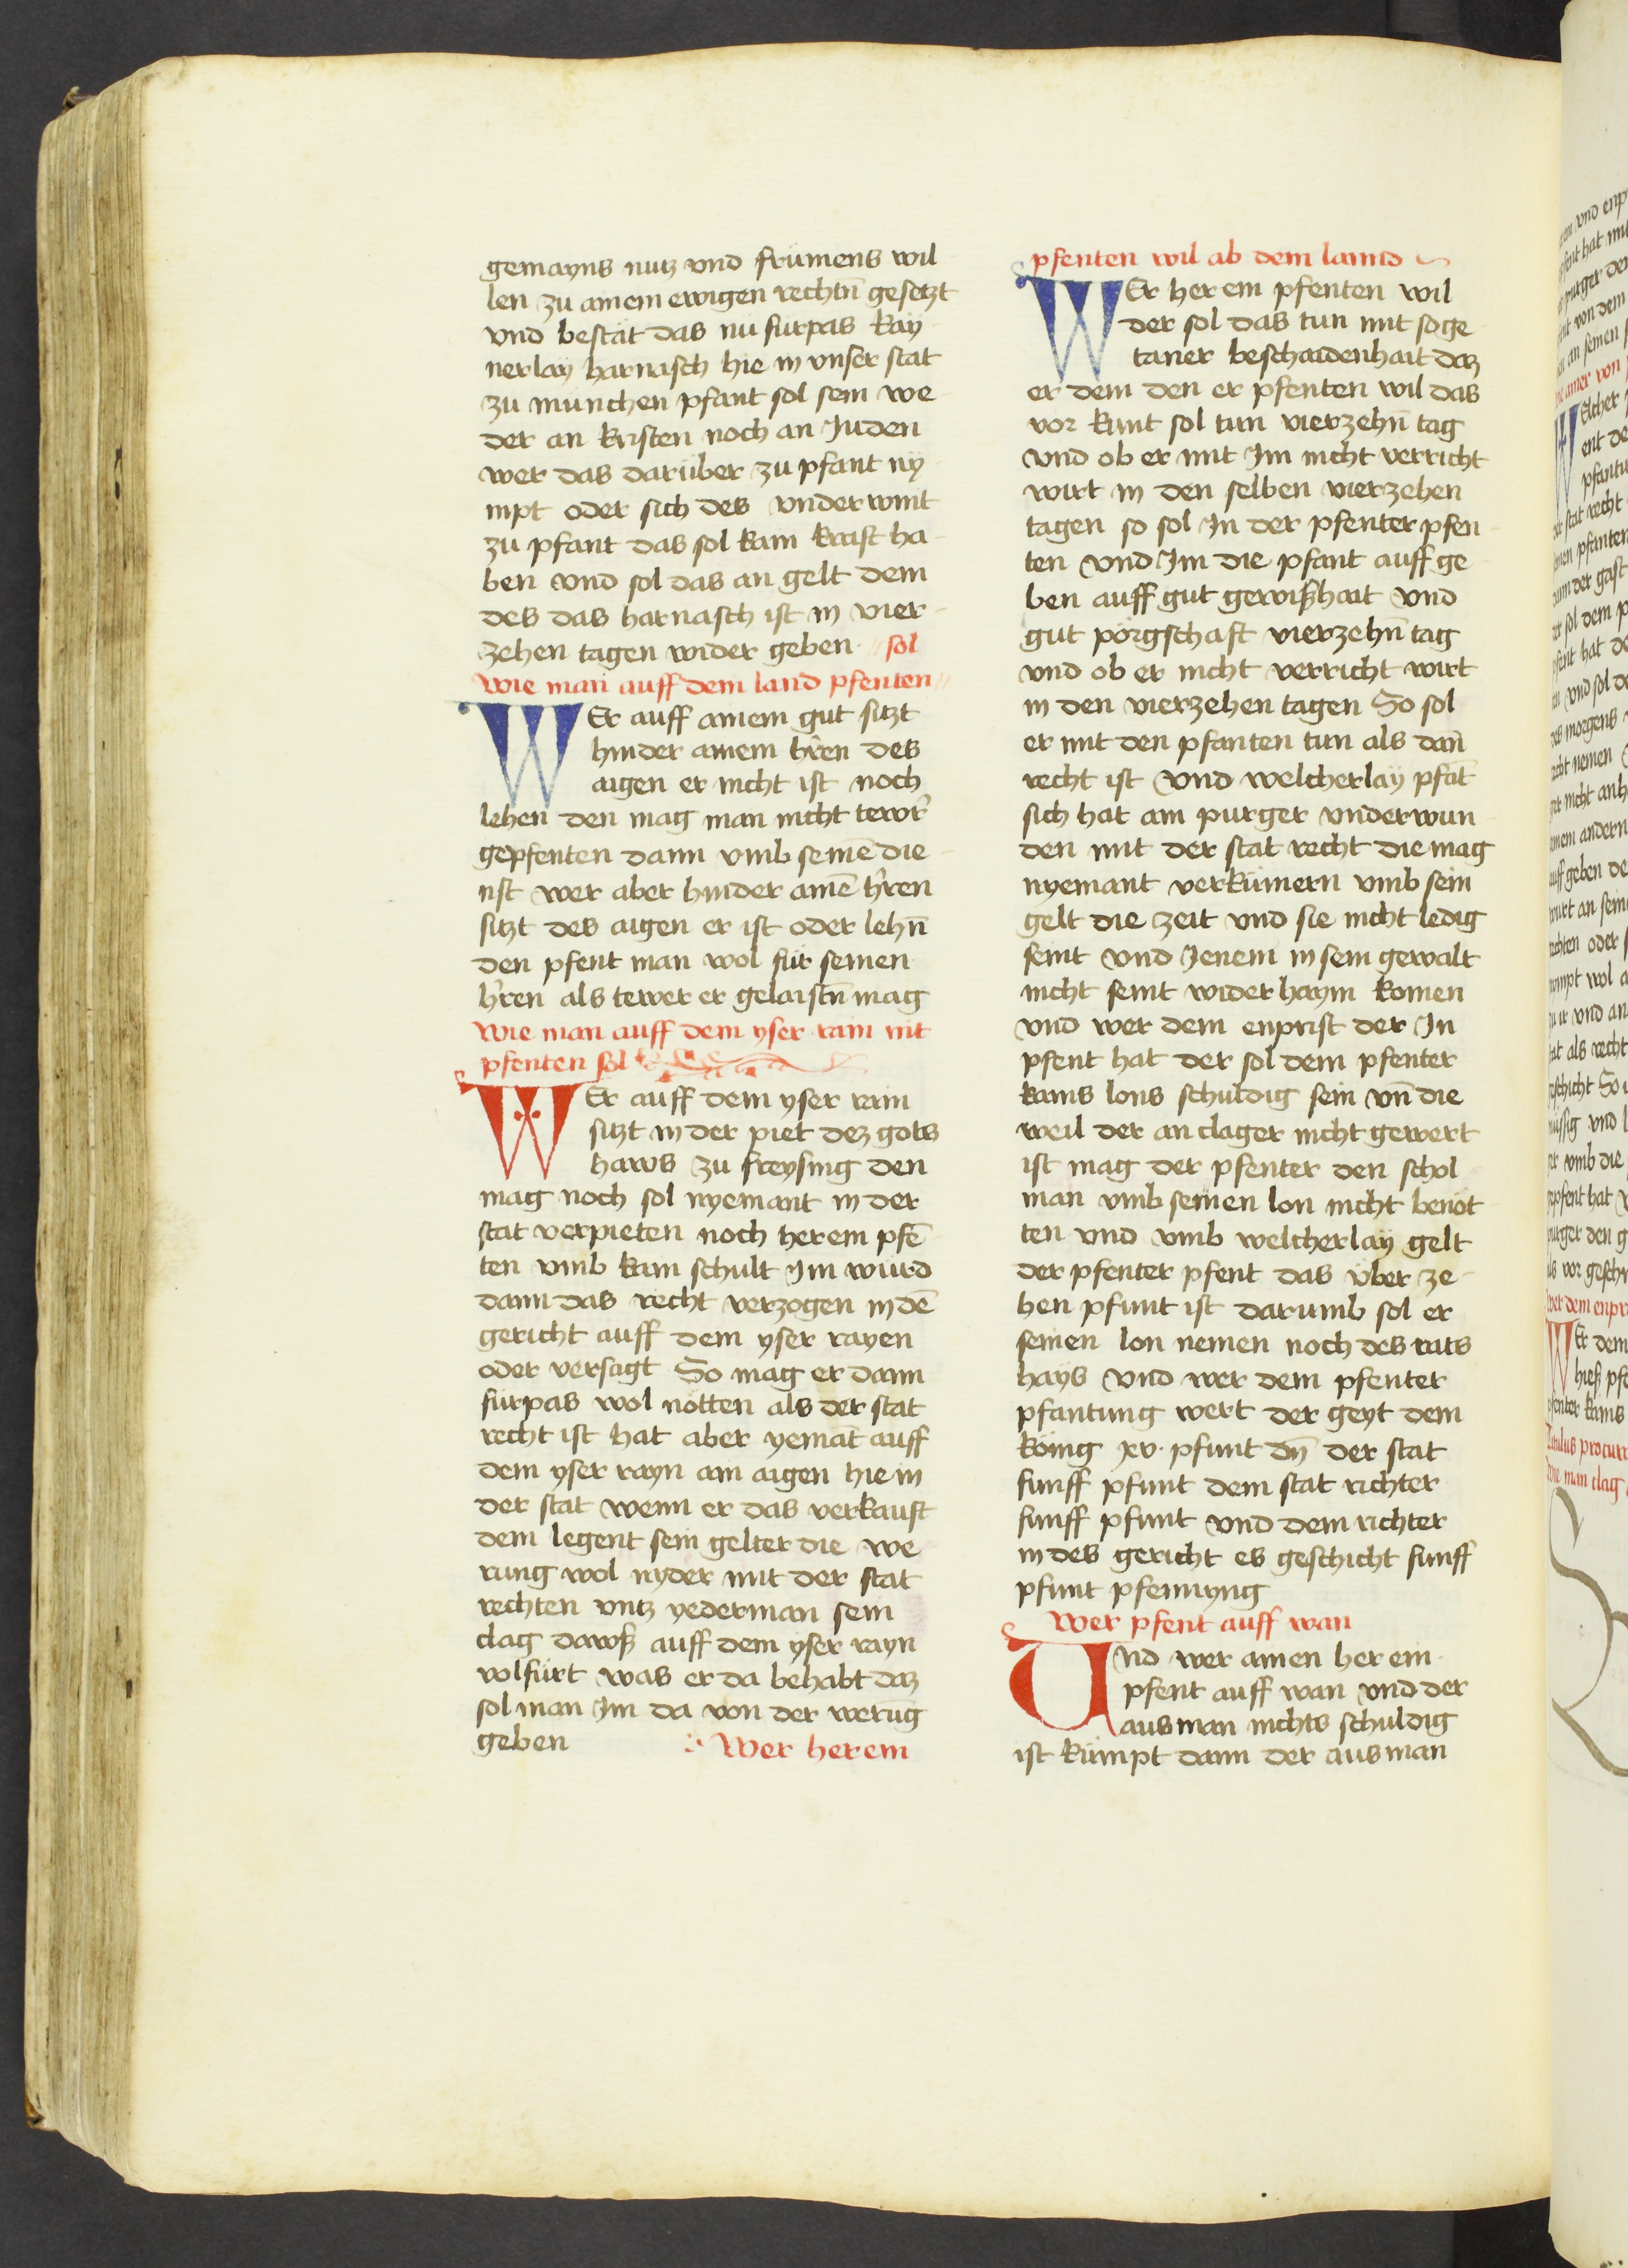 gemayns nutz vnd frümens wil
len zu ainem ewigen rechtn̄ gesetzt
vnd bestät das nü fürpas kay
nerlay harnasch hie in vnser stat
zu münchen pfant sol sein we
der an kristen noch an Juden
wer das darüber zu pfant ny
mpt oder sich des vnderwint
zu pfant das sol kain kraft ha
ben vnd sol das an gelt dem
des das harnasch ist in vier
zehen tagen wider geben // sol
Wie man auff dem land pfenten //
WEr auff ainem gut sitzt
hinder ainem hr̄en des
aigen er nicht ist noch
lehen den mag man nicht tewr̄
gepfenten dann vmb seinē die
nst wer aber hinder ainē hr̄en
sitzt des aigen er ist oder lehn̄
den pfent man wol für seinen
hr̄en als tewer er gelaistn̄ mag
Wie man auff dem yser rain nit
pfenten sol
WEr auff dem yser rain
sitzt in der piet dez gots
haws zu freysing den
mag noch sol nyemant in der
stat verpieten noch herein pfē
ten vmb kain schult Im würd
dann das recht verzogen in dē
gericht auff dem yser rayen
oder versagt So mag er dann
fürpas wol nötten als der stat
recht ist hat aber yemāt auff
dem yser rayn ain aigen hie in
der stat wenn er das verkauft
dem legent sein gelter die we
rung wol nyder mit der stat
rechten vntz yederman sein
clag dawß auff dem yser rayn
volfürt was er da behabt daz
sol man Im da von der werūg
geben
Wer herein
pfenten wil ab dem lannd
WEr herein pfenten wil
der sol das tun mit soge
taner beschaidenhait daz
er dem den er pfenten wil das
vor kunt sol tun vierzehn̄ tag
vnd ob er mit Im nicht verricht
wirt in den selben vierzehen
tagen so sol In der pfenter pfen
ten vnd Im die pfant auff ge
ben auff gut gewißhait vnd
gut pörgschaft vierzehn̄ tag
vnd ob er nicht verricht wirt
in den vierzehen tagen So sol
er mit den pfanten tun als dan̄
recht ist vnd welcherlay pfāt
sich hat ain purger vnderwun
den mit der stat recht die mag
nyemant verkümern vmb sein
gelt die zeit vnd sie nicht ledig
seint vnd Jenem in sein gewalt
nicht seint wider haym komen
vnd wer dem enprist der In
pfent hat der sol dem pfenter
kains lons schuldig sein vn̄ die
weil der anclager nicht gewert
ist mag der pfenter den schol
man vmb seinen lon nicht benöt
ten vnd vmb welcherlay gelt
der pfenter pfent das über ze
hen pfunt ist darumb sol er
seinen lon nemen noch des rats
hays vnd wer dem pfenter
pfantung wert der geyt dem
könig xv. pfunt dn̄ der stat
funff pfunt dem stat richter
funff pfunt vnd dem richter
in des gericht es geschicht funff
pfunt pfennyng
Wer pfent auff wan
Vnd wer ainen herein
pfent auff wan vnd der
ausman nichts schuldig
ist kümpt dann der ausman